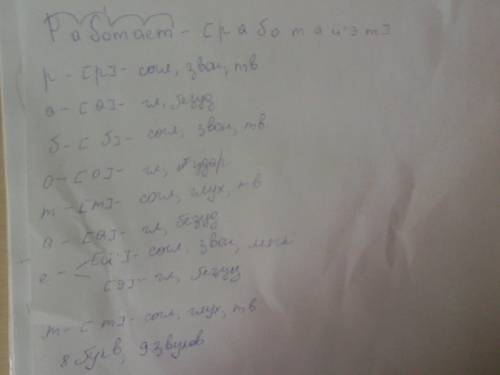 Работает - [р а б о т а й' э т]
р - [р] - согл, звон, тв
а - [а] - гл, безуд
б - [б] - согл, звон, тв
о - [о] - гл, удар
т - [т] - согл, глух, тв
а - [а] - гл, безуд
е - [й'] - согл, звон, мягк
[э] - гл, безуд
т - [т] - согл, глух, тв
8 букв, 9 звуков